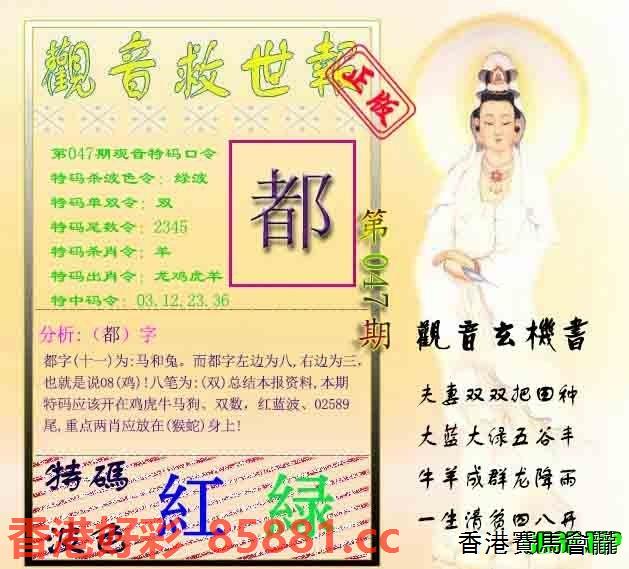 觀音救世報
正版
第047期观音特码口令
特码杀波色令：绿波
特码单双令：双
特码尾数令：2345
特码杀肖令：羊
特码出肖令：龙鸡虎羊
特中码令：03.12.23.36
都
第047期
分析:（都）字
都字(十一)为:马和兔。而都字左边为八,右边为三,
也就是说08(鸡)!八笔为:(双)总结本报资料,本期
特码应该开在鸡虎牛马狗、双数，红蓝波、02589
尾,重点两肖应放在(猴蛇)身上!
特碼
波色
紅
绿
香港好彩
85881.cc
觀音玄機書
夫妻双双把田种
大蓝大绿五谷丰
牛羊成群龙降雨
一生清贫四八开
香港賽馬會